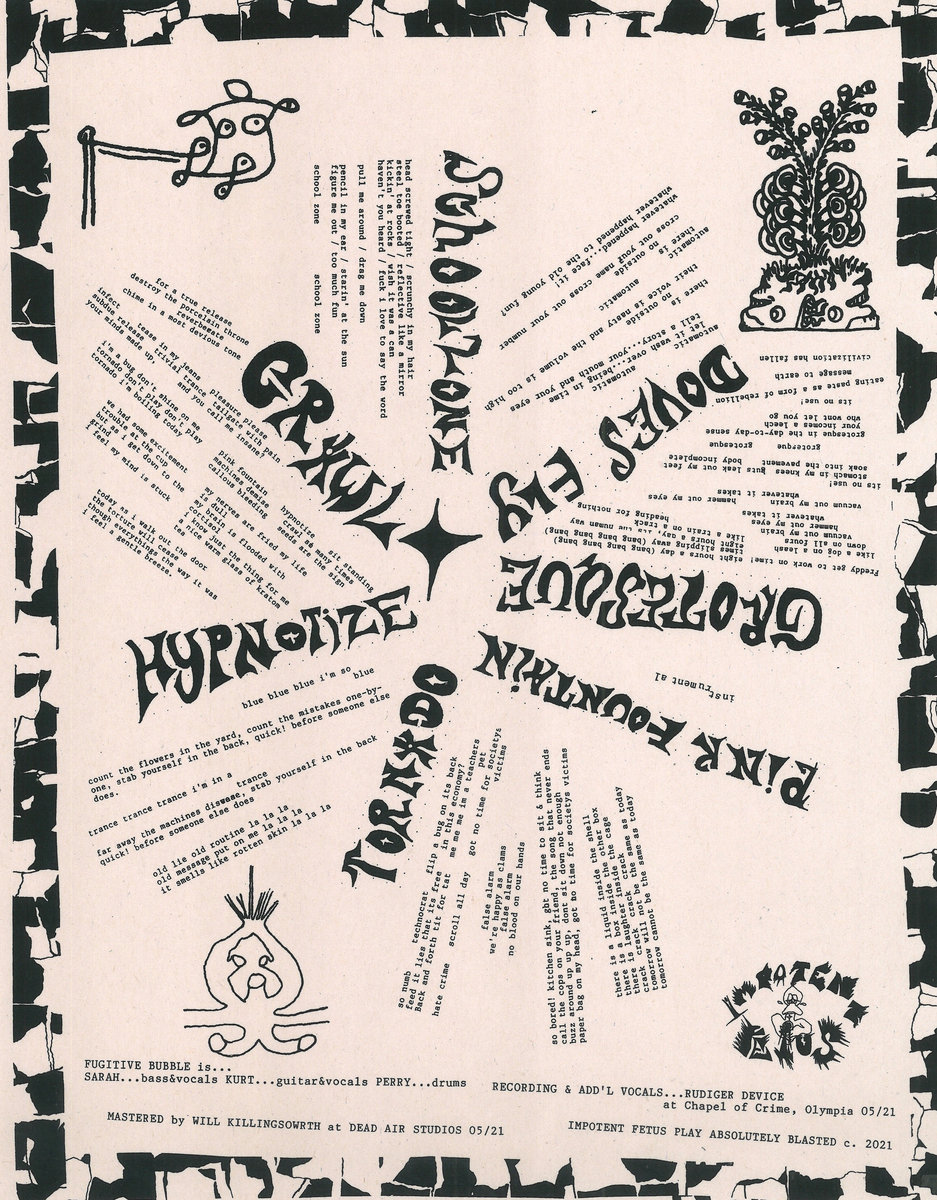 SCHOOL ZONE
head screwed tight / scrunchy in my hair
steel toe booted / reflective like a mirror
kickin' at rocks / wish it was a can
haven't you heard / fuck i love to say the word
pull me around / drag me down
pencil in my ear / starin' at the sun
figure me out / too much fun
school zone school zone
DOVES FLY
automatic time
automatic...being...time
let it wash over...your eyes
tell a story...your mouth and
there is no outside
their voice is nasty and the volume is too high
automatic automatic
there is no outside
cross out your name cross out your number
whatever happened...face...it!
whatever happened to the old young?
GROTESQUE
Freddy get to work on time! eight hours a day (bang bang bang bang)
times slipping away (bang bang bang bang)
eight hours a day,
like a train on a track heading for nothing
like a dog on a leash
down on all fours
vacuum out my brain
hammer out my eyes
whatever it takes
vacuum out my brain hammer out my eyes
whatever it takes
its no use!
stomach in my knees guts leak out my feet
soak into the pavement body incomplete
grotesque grotesque
grotesque in the day-to-day sense
your incomes a leech
who wont let you go
its no use!
eating paste as a form of rebellion
message to earth
civilization has fallen
PINK FOUNTAIN
instrumental
TORNADO
so numb technocrat flip a bug on its back
feed it lies that its free in this economy?
Back and forth tit for tat me me me im a teachers pet
hate crime scroll all day got no time for societys victims
false alarm
we're happy as clams
false alarm
no blood on our hands
so bored! kitchen sink, gbt no time to sit & think
call the cops on your friend, the song that never ends
buzz around up up up, dont sit down not enough
paper bag on my head, got no time for societys victims
there is a liquid inside the shell
there is a box inside the other box
there is laughter inside the cage
there is crack, crack, crack
crack crack the same as today
tomorrow will not be the same as today
tomorrow cannot be the same as today
HYPNOTIZE
blue blue blue i'm so blue
count the flowers in the yard, count the mistakes one-by-
one, stab yourself in the back, quick! before someone else
does.
trance trance trance i'm in a trance
far away the machines disease, stab yourself in the back
quick! before someone else does
old lie old routine la la la
old message put on me la la la
it smells like rotten skin la la la
CRAWL
for a true release
destroy the porcelain throne
reverberate
chime in a most devious tone
infect tease in my jeans pleasure please
subdue release trance tailgates with pain
your minds made up trivial and you call me insane?
i'm a bug don't shine on me
tornado don't play don't play
tornado i'm boiling today
pink fountain
machines demise
callous bleeding
hypnotize sit standing
crawl as many times
needs are the sign
we had some excitement
trouble at the cup
but as i get down to the grind
feel!
my mind is stuck
my nerves are fried my life
is dull
my brain is flooded with
cortisol
i know just the thing for me
a nice warm glass of kratom
today as i walk out the door
the torture will cease
though everythings the way it was
i feel! gentle breeze
IMPOTENT
FETUS
FUGITIVE BUBBLE is...
SARAH...bass&vocals KURT...guitar&vocals PERRY...drums
RECORDING & ADD'L VOCALS...RUDIGER DEVICE
at Chapel of Crime, Olympia 05/21
MASTERED by WILL KILLINGSOWRTH at DEAD AIR STUDIOS 05/21
IMPOTENT FETUS PLAY ABSOLUTELY BLASTED c. 2021